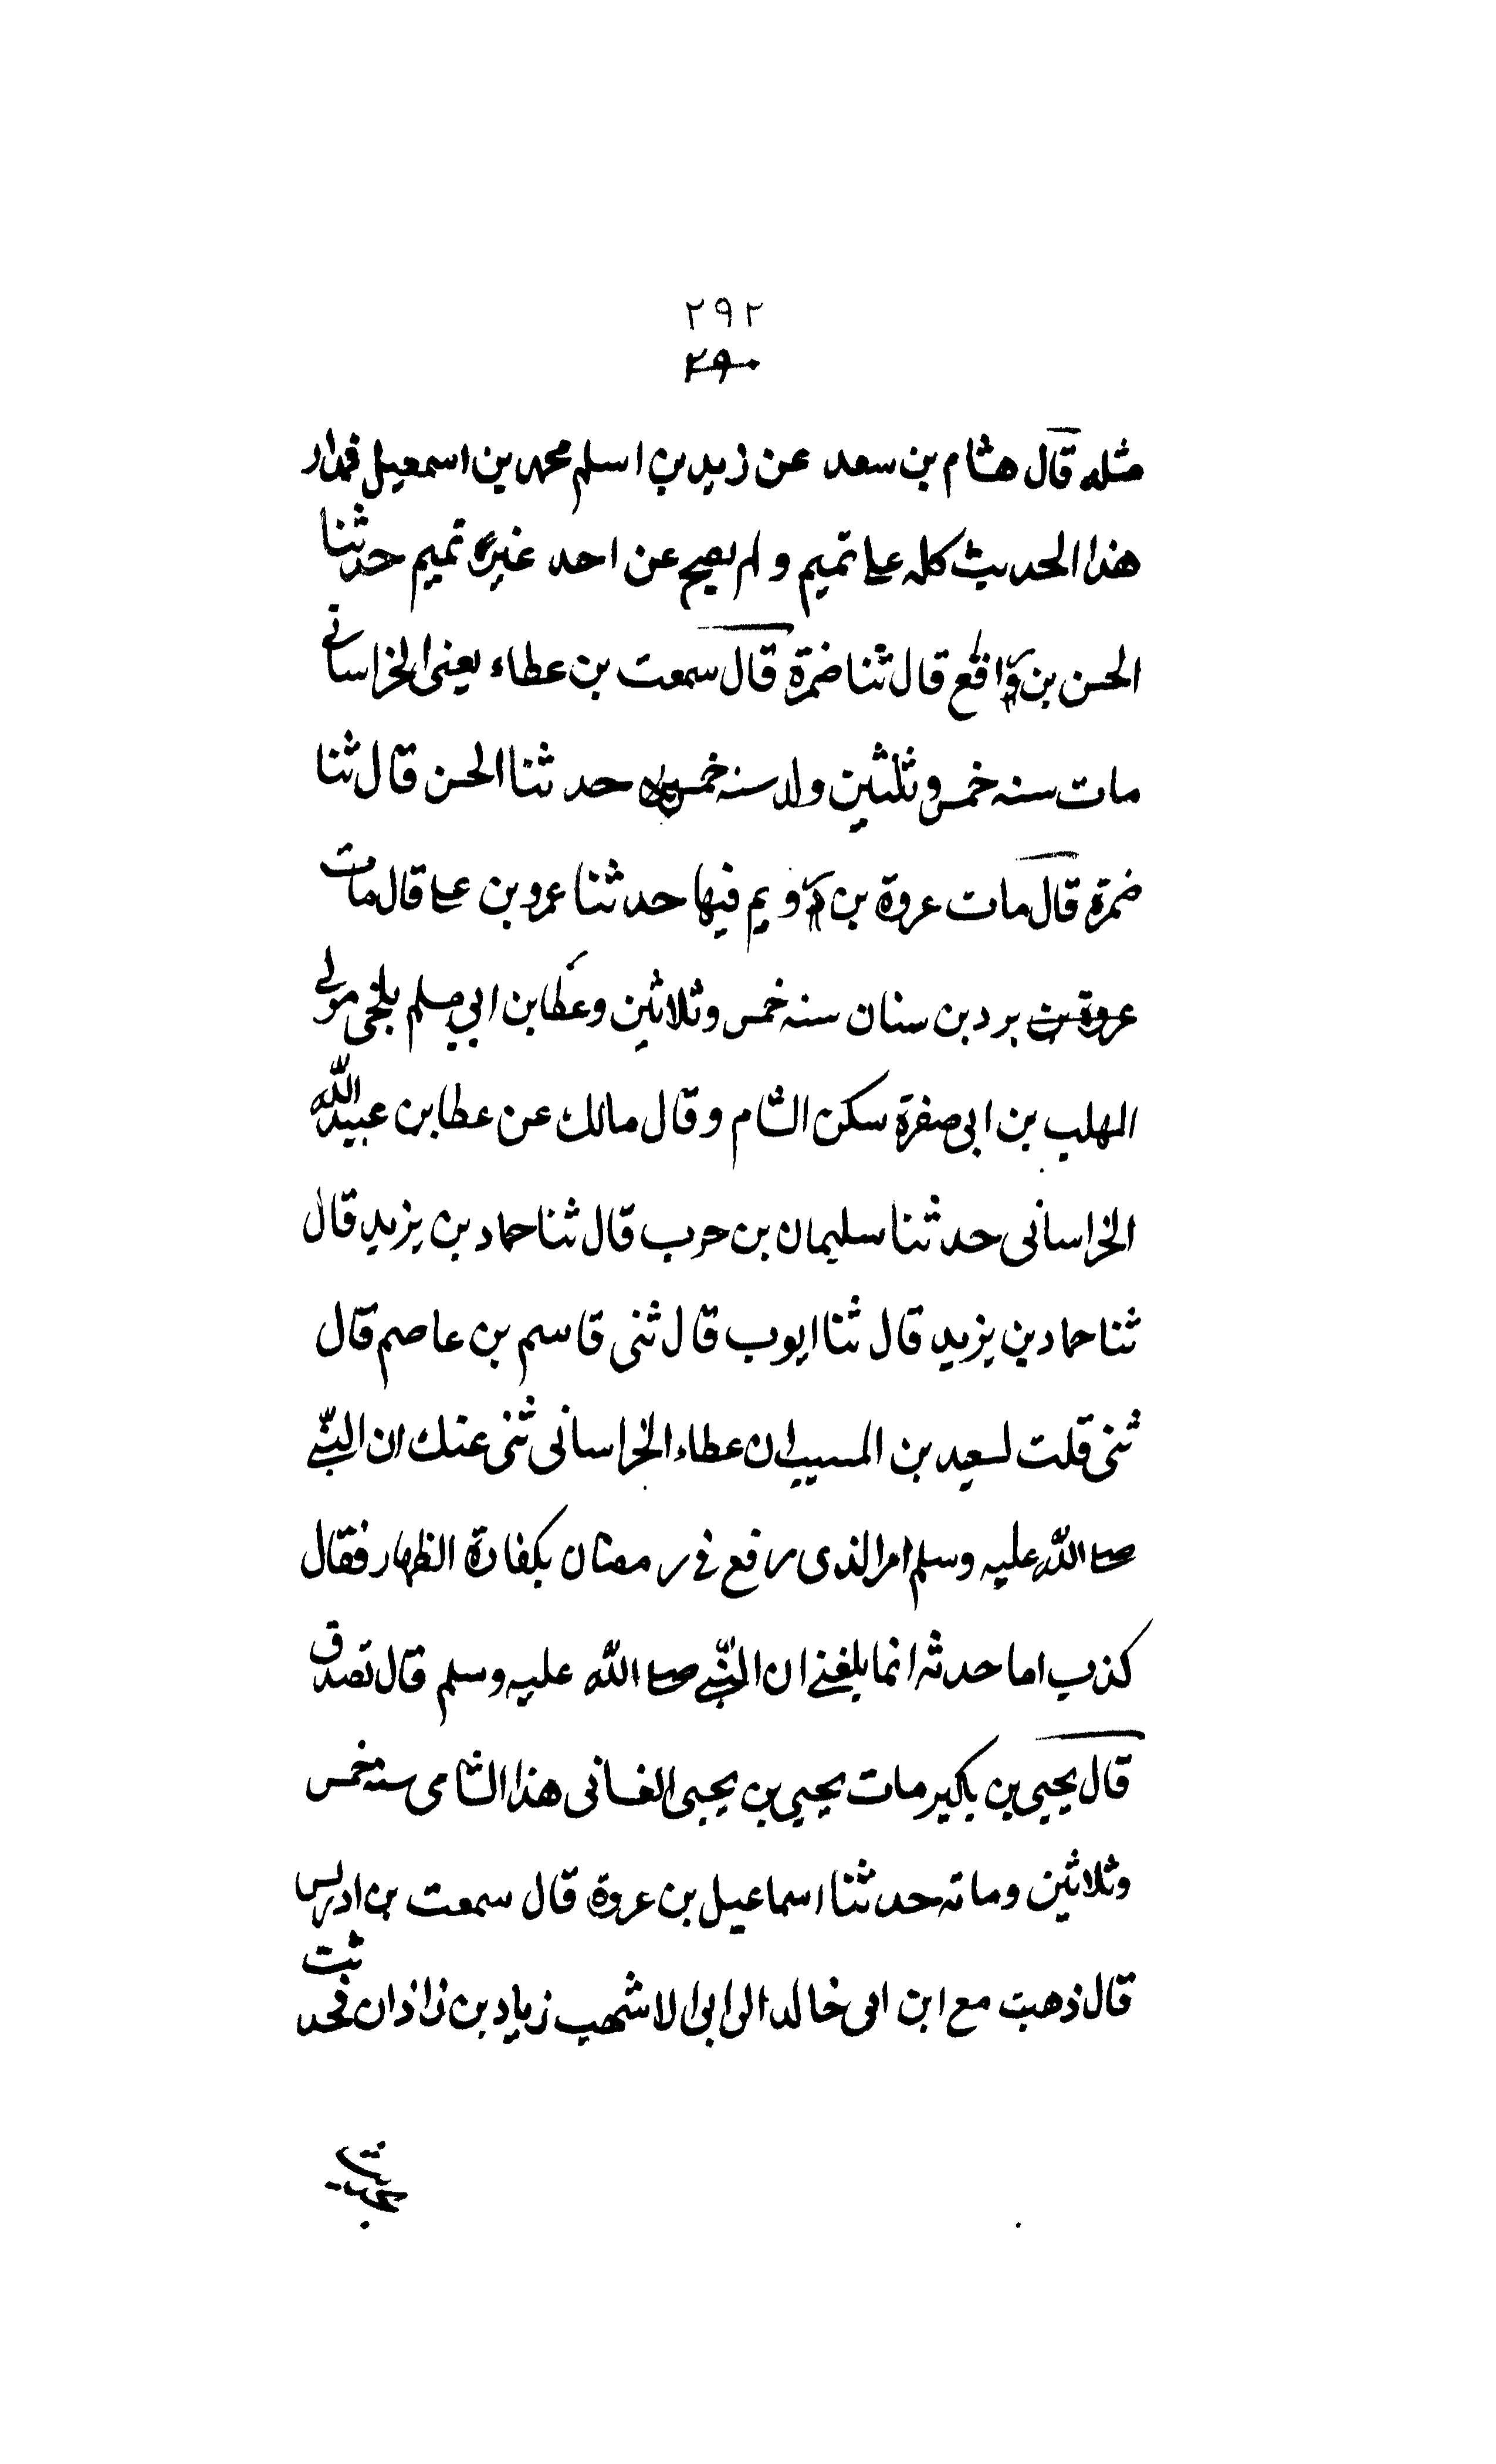 ٢٩٢
٢٩٠
مثله قال هشام بن سعد عن زيد بن اسلم محمد بن اسمعيل فمدار
هذا الحديث كله على تميم ولم يصح عن احد غير تميم حدثنا
الحسن بن واقع قال ثنا ضمرة قال سمعت بن عطاء يعنى الخراسانے
مات سنه خمس وثلثين ولد سنه خمسين حدثنا الحسن قال ثنا
ضمرة قال مات عروة بن رويم فيها حدثنا عمرو بن على قال مات
عروة بن برد بن سنان سنه خمس وثلاثين وعطا بن ابي مسلم بلخى مولے
المهلب بن ابى صفرة سكن الشام وقال مالك عن عطا بن عبيد الله
الخراسانى حدثنا سليمان بن حرب قال ثنا حماد بن يزيد قال
ثنا حماد بن يزيد قال ثنا ايوب قال ثنى قاسم بن عاصم قال
ثنى قلت لسعيد بن المسيب ان عطاء الخراسانى ثنى عنك ان النبے
صلى الله عليه وسلم امر الذى رفع فے رمضان بكفارة الظهار فقال
كذب اما حدثه انما بلغنے ان النبے صلى الله عليه وسلم قال تصدق
قال يحيى بن بكير مات يحيى بن يحيى الغسانى هذا الشامى سنه خمس
وثلاثين ومائه حدثنا اسماعيل بن عروة قال سمعت بن ادريس
قال ذهبت مع ابن ابى خالد الى ابى الاشهب زياد بن زاذان فحدثت